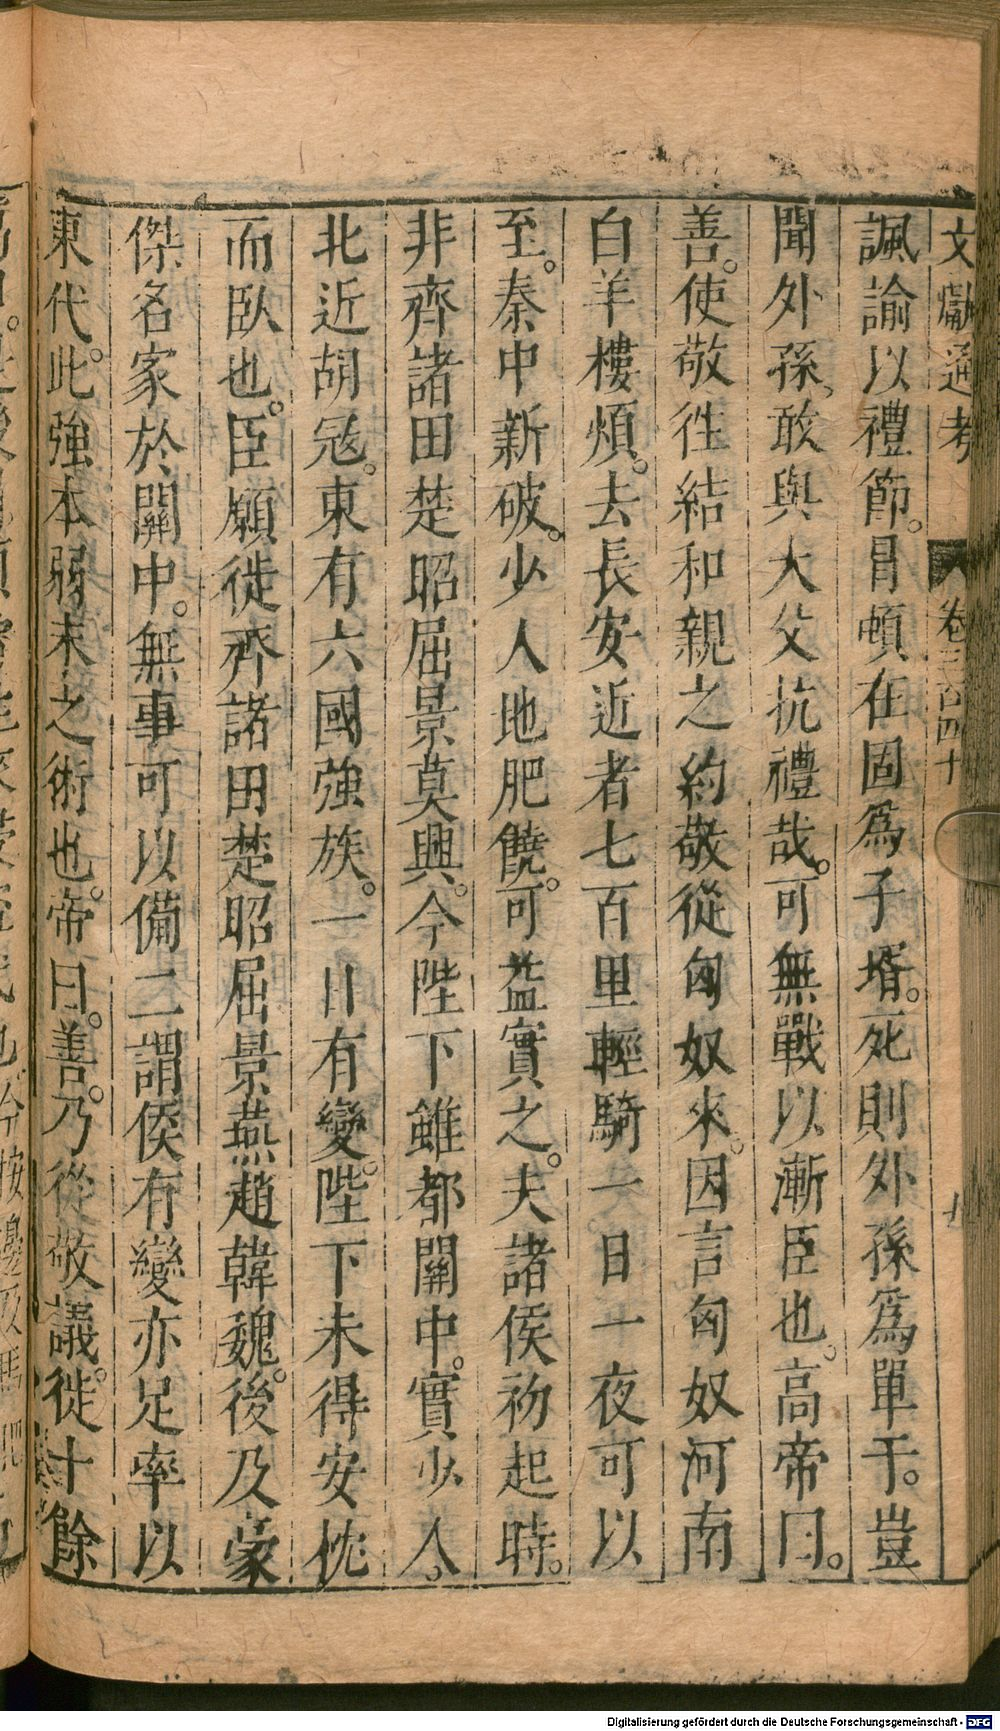 文獻通考 卷三百四十
諷諭以禮節。冒頓在固爲子壻。死則外孫爲單于。豈
聞外孫、敢與大父抗禮哉。可無戰以漸臣也。高帝曰。
善。使敬徃結和親之約敬從匈奴來。因言匈奴河南
白羊樓煩。去長安近者七百里輕騎一日一夜可以
至。秦中新破。少人地肥饒。可益實之。夫諸侯初起時。
非齊諸田楚昭屈景莫興。今陛下雖都關中。實少人。
北近胡冦。東有六國強族。一日有變。陛下未得安枕
而臥也。臣願徙齊諸田楚昭屈景燕趙韓魏。後及豪
傑名家於關中。無事可以備二謂侯有變亦足率以
東代。此強本弱末之術也。帝曰。善。乃從敬議。徙十餘
Digitalisierung gefördert durch die Deutsche Forschungsgemeinschaft - DFG